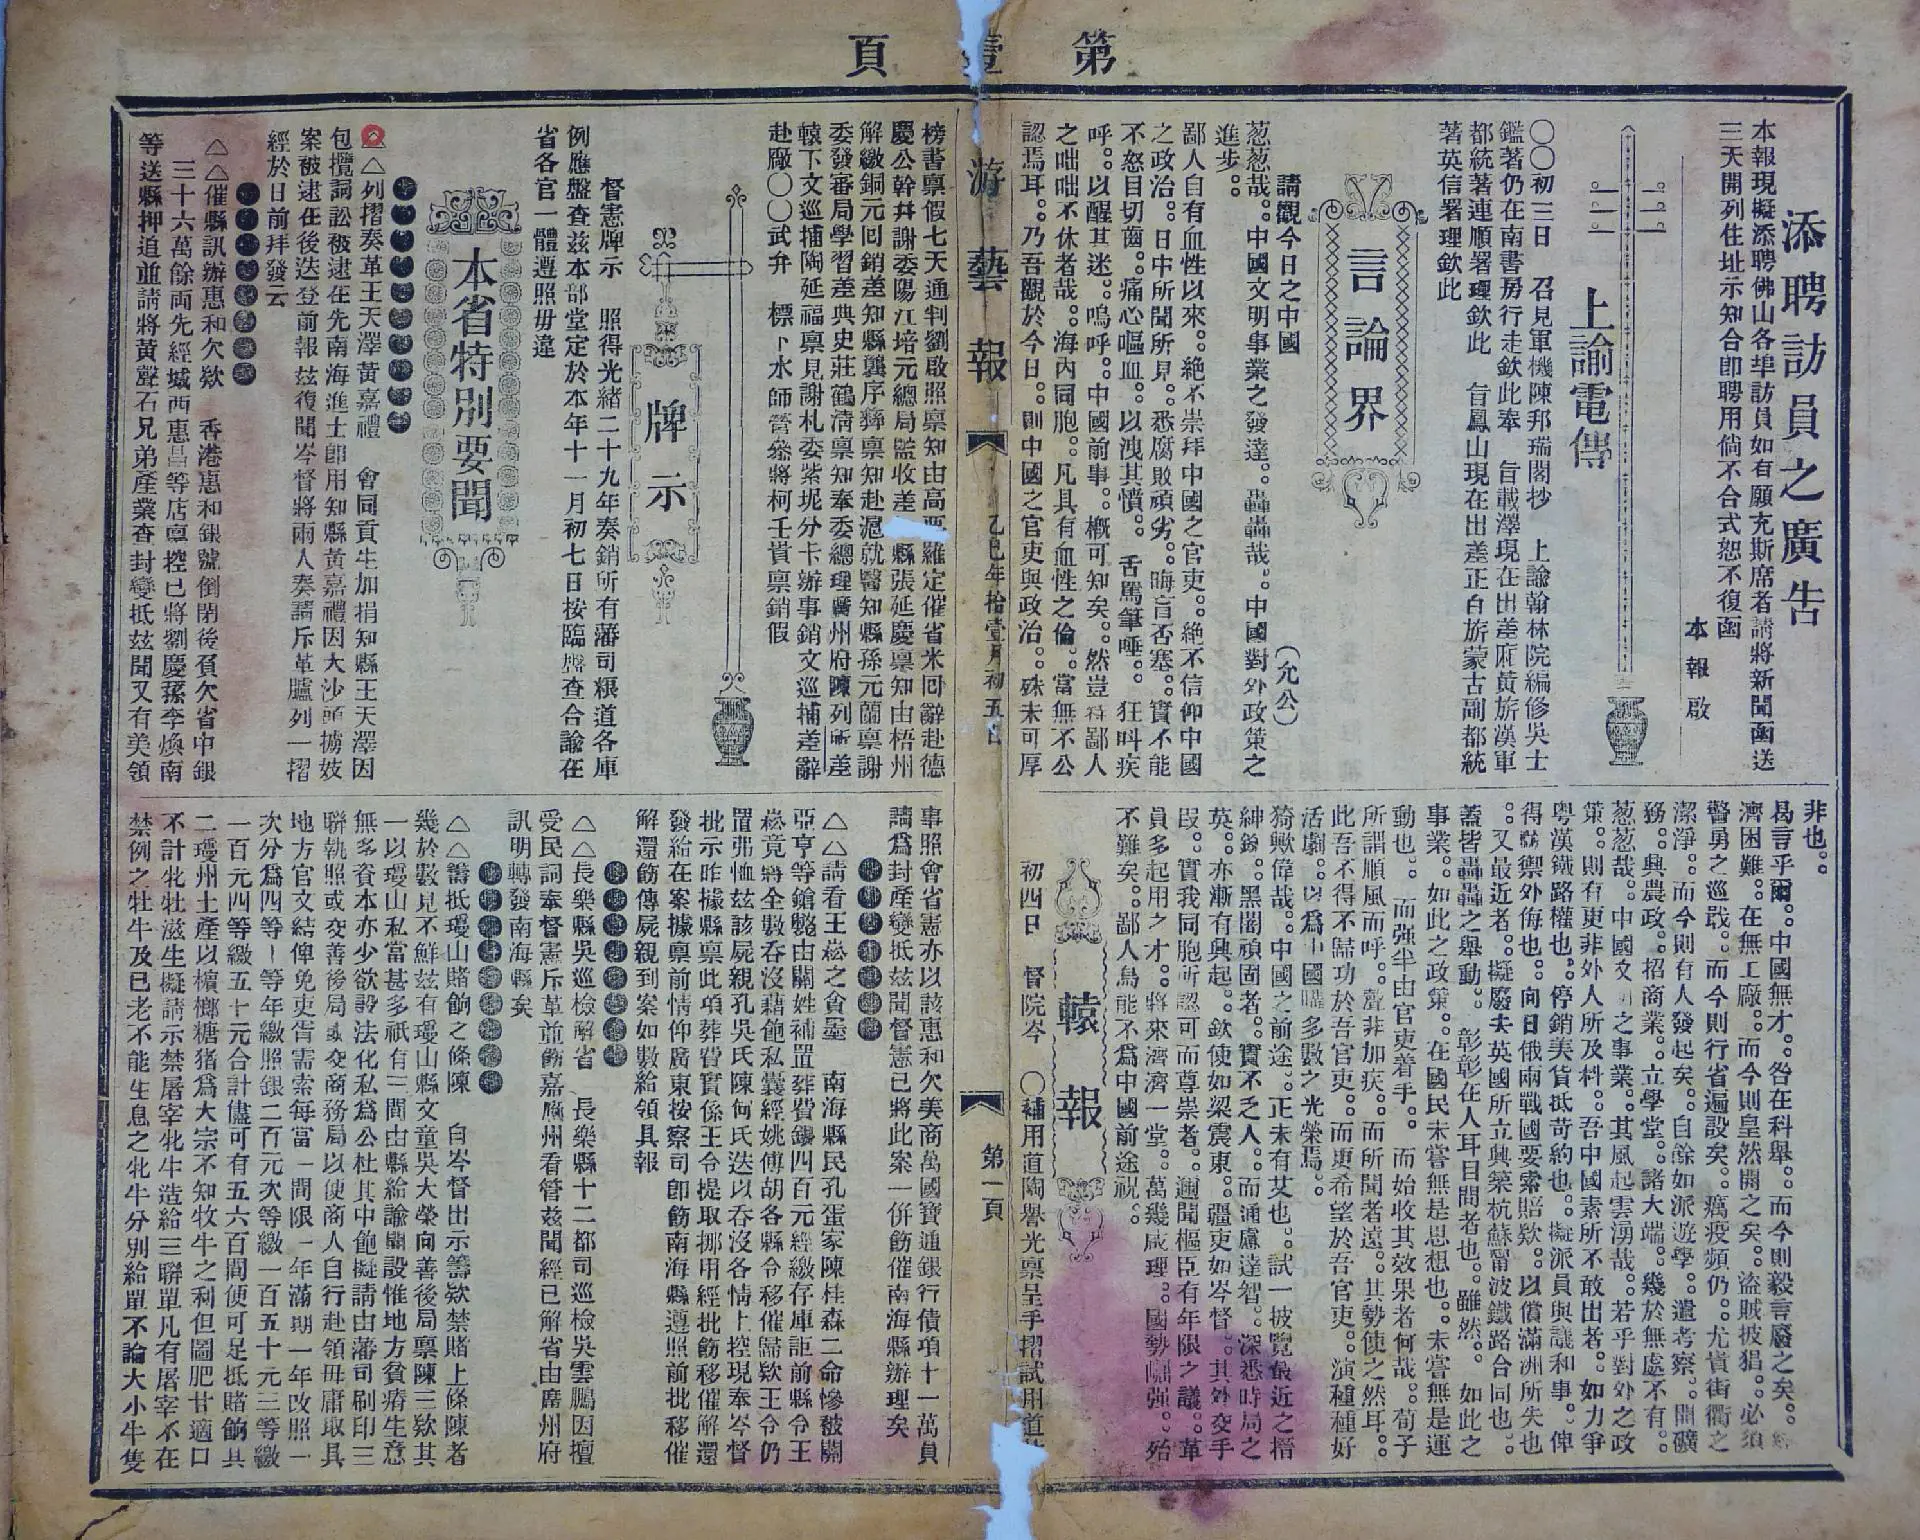 第壹頁
添聘訪員之廣告
本報現擬添聘佛山各埠訪員如有願充斯席者請將新聞函送
三天開列住址示知合即聘用倘不合式恕不復函
本報啟
上諭電傳
〇〇初三日　召見軍機陳邦瑞閣抄　上諭翰林院編修吳士
鑑著仍在南書房行走欽此奉　旨載澤現在出差府黃旂漢軍
都統著連順署理欽此　旨鳳山現在出差正白旂蒙古副都統
著英信署理欽此
言論界
請觀今日之中國　（允公）
葱葱哉。。中國文明事業之發達。。轟轟哉。。中國對外政策之
進步。。
鄙人自有血性以來。。絶不崇拜中國之官吏。。絶不信仰中國
之政治。。日中所聞所見。。悉腐敗頑劣。。晦盲否塞。。實不能
不怒目切齒。。痛心嘔血。。以洩其憤。。舌罵筆唾。。狂呌疾
呼。。以醒其迷。。嗚呼。。中國前事。。概可知矣。。然豈鄙人
之咄咄不休者哉。。海內同胞。。凡具有血性之倫。。當無不公
認焉耳。。乃吾觀於今日。。則中國之官吏與政治。。殊未可厚
非也。。
易言乎爾。。中國無才。。咎在科舉。。而今則毅言廢之矣。。
濟困難。。在無工廠。。而今則皇然開之矣。。盜賊披猖。。必須
警勇之巡戢。。而今則行省遍設矣。。癘疫頻仍。。尤貴街衢之
潔淨。。而今則有人發起矣。。自餘如派遊學。。遣考察。。開礦
務。。興農政。。招商業。。立學堂。。諸大端。。幾於無處不有。。
葱葱哉。。中國文明之事業。。其風起雲湧哉。。若乎對外之政
策。。則有更非外人所及料。。吾中國素所不敢出者。。如力爭
粤漢鐵路權也。。停銷美貨抵苛約也。。擬派員與議和事。。俾
得禦外侮也。。向日俄兩戰國要索賠欵。。以償滿洲所失也
。。又最近者。。擬廢去英國所立興築杭蘇甯波鐵路合同也。。
蓋皆轟轟之舉動。。彰彰在人耳目間者也。。雖然。。如此之
事業。。如此之政策。。在國民未嘗無是思想也。。未嘗無是運
動也。。而強半由官吏着手。。而始收其效果者何哉。。荀子
所謂順風而呼。。聲非加疾。。而所聞者遠。。其勢使之然耳。。
此吾不得不歸功於吾官吏。。而更希望於吾官吏。。演種種好
活劇。。以爲中國購多數之光榮焉。。
猗歟偉哉。。中國之前途。。正未有艾也。。試一披覽最近之搢
紳錄。。黑闇頑固者。。實不乏人。。而通慮達智。。深悉時局之
英。。亦漸有興起。。欽使如梁震東。。疆吏如岑督。。其外交手
段。。實我同胞所認可而尊崇者。。邇聞樞臣有年限之議。。革
員多起用之才。。將來濟濟一堂。。萬幾咸理。。國勢嵎强。。殆
不難矣。。鄙人烏能不爲中國前途祝。。
轅報
初四日　督院岑　〇補用道陶譽光禀呈手摺試用道
游藝報
乙巳年拾壹月初五日
第一頁
榜書禀假七天通判劉啟照禀知由高要羅定催省米回辭赴德
慶公幹并謝委陽江培元總局監收差縣張延慶禀知由梧州
解繳銅元回銷差知縣龔序彝禀知赴滬就醫知縣孫元蘭禀謝
委發審局學習差典史莊鶴淸禀知奉委總理廣州府陳列所差
轅下文巡捕陶延福禀見謝札委紫坭分卡辦事銷文巡捕差辭
赴廠〇〇武弁　標下水師管叅將柯壬貴禀銷假
牌示
督憲牌示　照得光緒二十九年奏銷所有藩司糧道各庫
例應盤查玆本部堂定於本年十一月初七日按臨盤查合諭在
省各官一體遵照毋違
本省特別要聞
△△列摺奏革王天澤黃嘉禮　會同貢生加捐知縣王天澤因
包攬詞訟被逮在先南海進士即用知縣黃嘉禮因大沙頭擄妓
案被逮在後迭登前報玆復聞岑督將兩人奏請斥革臚列一摺
經於日前拜發云
△△催縣訊辦惠和欠欵　香港惠和銀號倒閉後負欠省中銀
三十六萬餘両先經城西惠昌等店禀控已將劉慶蓀李煥南
等送縣押追並請將黃聲石兄弟產業查封變抵玆聞又有美領
事照會省憲亦以該惠和欠美商萬國寶通銀行債項十一萬員
請爲封產變抵玆聞督憲已將此案一併飭催南海縣辦理矣
△△請看王崧之貪墨　南海縣民孔蛋家陳桂森二命慘被關
亞亨等鎗斃由關姓補置葬費銀四百元經繳存庫詎前縣令王
崧竟將全數吞沒藉飽私囊經姚傅胡各縣令移催歸欵王令仍
置弗恤玆該屍親孔吳氏陳何氏迭以吞沒各情上控現奉岑督
批示昨據縣禀此項葬費實係王令提取挪用經批飭移催解還
發給在案據禀前情仰廣東按察司即飭南海縣遵照前批移催
解還飭傳屍親到案如數給領具報
△△長樂縣吳巡檢解省　長樂縣十二都司巡檢吳雲鵬因擅
受民詞奉督憲斥革並飭嘉應州看管玆聞經已解省由廣州府
訊明轉發南海縣矣
△△籌抵瓊山賭餉之條陳　自岑督出示籌欵禁賭上條陳者
幾於數見不鮮玆有瓊山縣文童吳大榮向善後局禀陳三欵其
一以瓊山私當甚多祇有三間由縣給諭開設惟地方貧瘠生意
無多資本亦少欲設法化私爲公杜其中飽擬請由藩司刷印三
聯執照或交善後局或交商務局以便商人自行赴領毋庸取具
地方官文結俾免吏胥需索每當一間限一年滿期一年改照一
次分爲四等一等年繳照銀二百元次等繳一百五十元三等繳
一百元四等繳五十元合計儘可有五六百間便可足抵賭餉其
二瓊州土產以檳榔糖猪爲大宗不知牧牛之利但圖肥甘適口
不計牝牡滋生擬請示禁屠宰牝牛造給三聯單凡有屠宰不在
禁例之牡牛及已老不能生息之牝牛分別給單不論大小牛隻